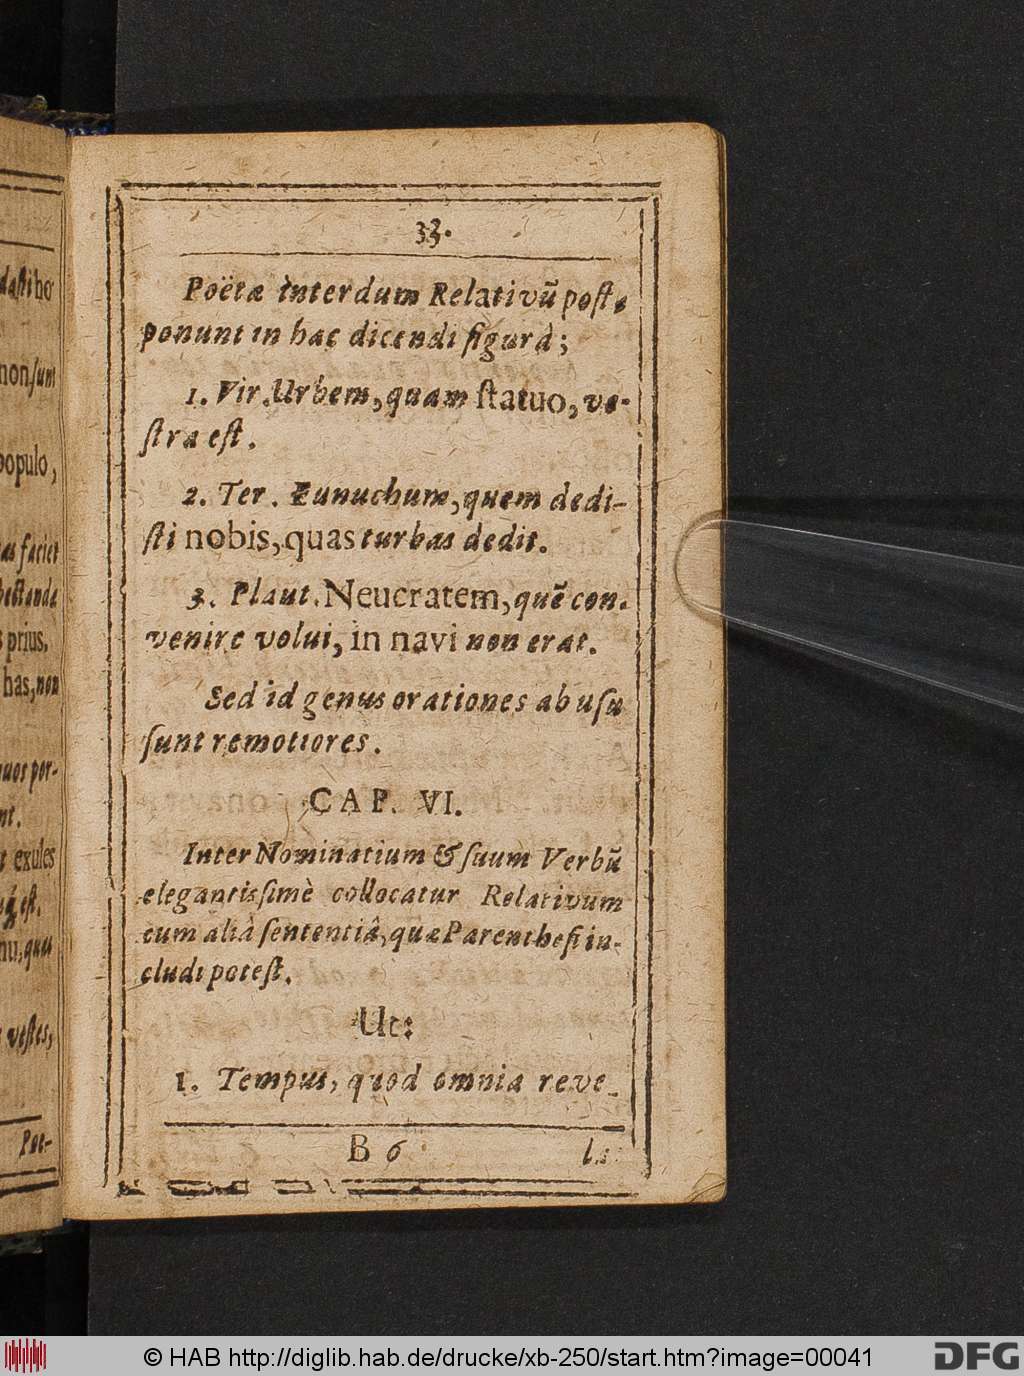 daſti ho
non ſunt
populo,
as faciet
s prius.
has, non
uos per-
nt.
t exules
eſt.
nu, quas
veſtes,
Poe-
33.
Poëtæ interdum Relativũ poſt-
ponunt in hac dicendi figurâ;
1. Vir. Urbem, quam ſtatuo, ve-
ſtra eſt.
2. Ter. Eunuchum, quem dedi-
ſti nobis, quas turbas dedit.
3. Plaut. Neucratem, quẽ con-
venire volui, in navi non erat.
Sed id genus orationes ab uſu
ſunt remotiores.
CAP. VI.
Inter Nominatium & ſuum Verbũ
elegantisſimè collocatur Relativum
cum aliâ ſententiâ, quæ Parentheſi in-
cludi poteſt.
Ut:
1. Tempus, quod omnia reve-
B 6
© HAB http://diglib.hab.de/drucke/xb-250/start.htm?image=00041
DFG